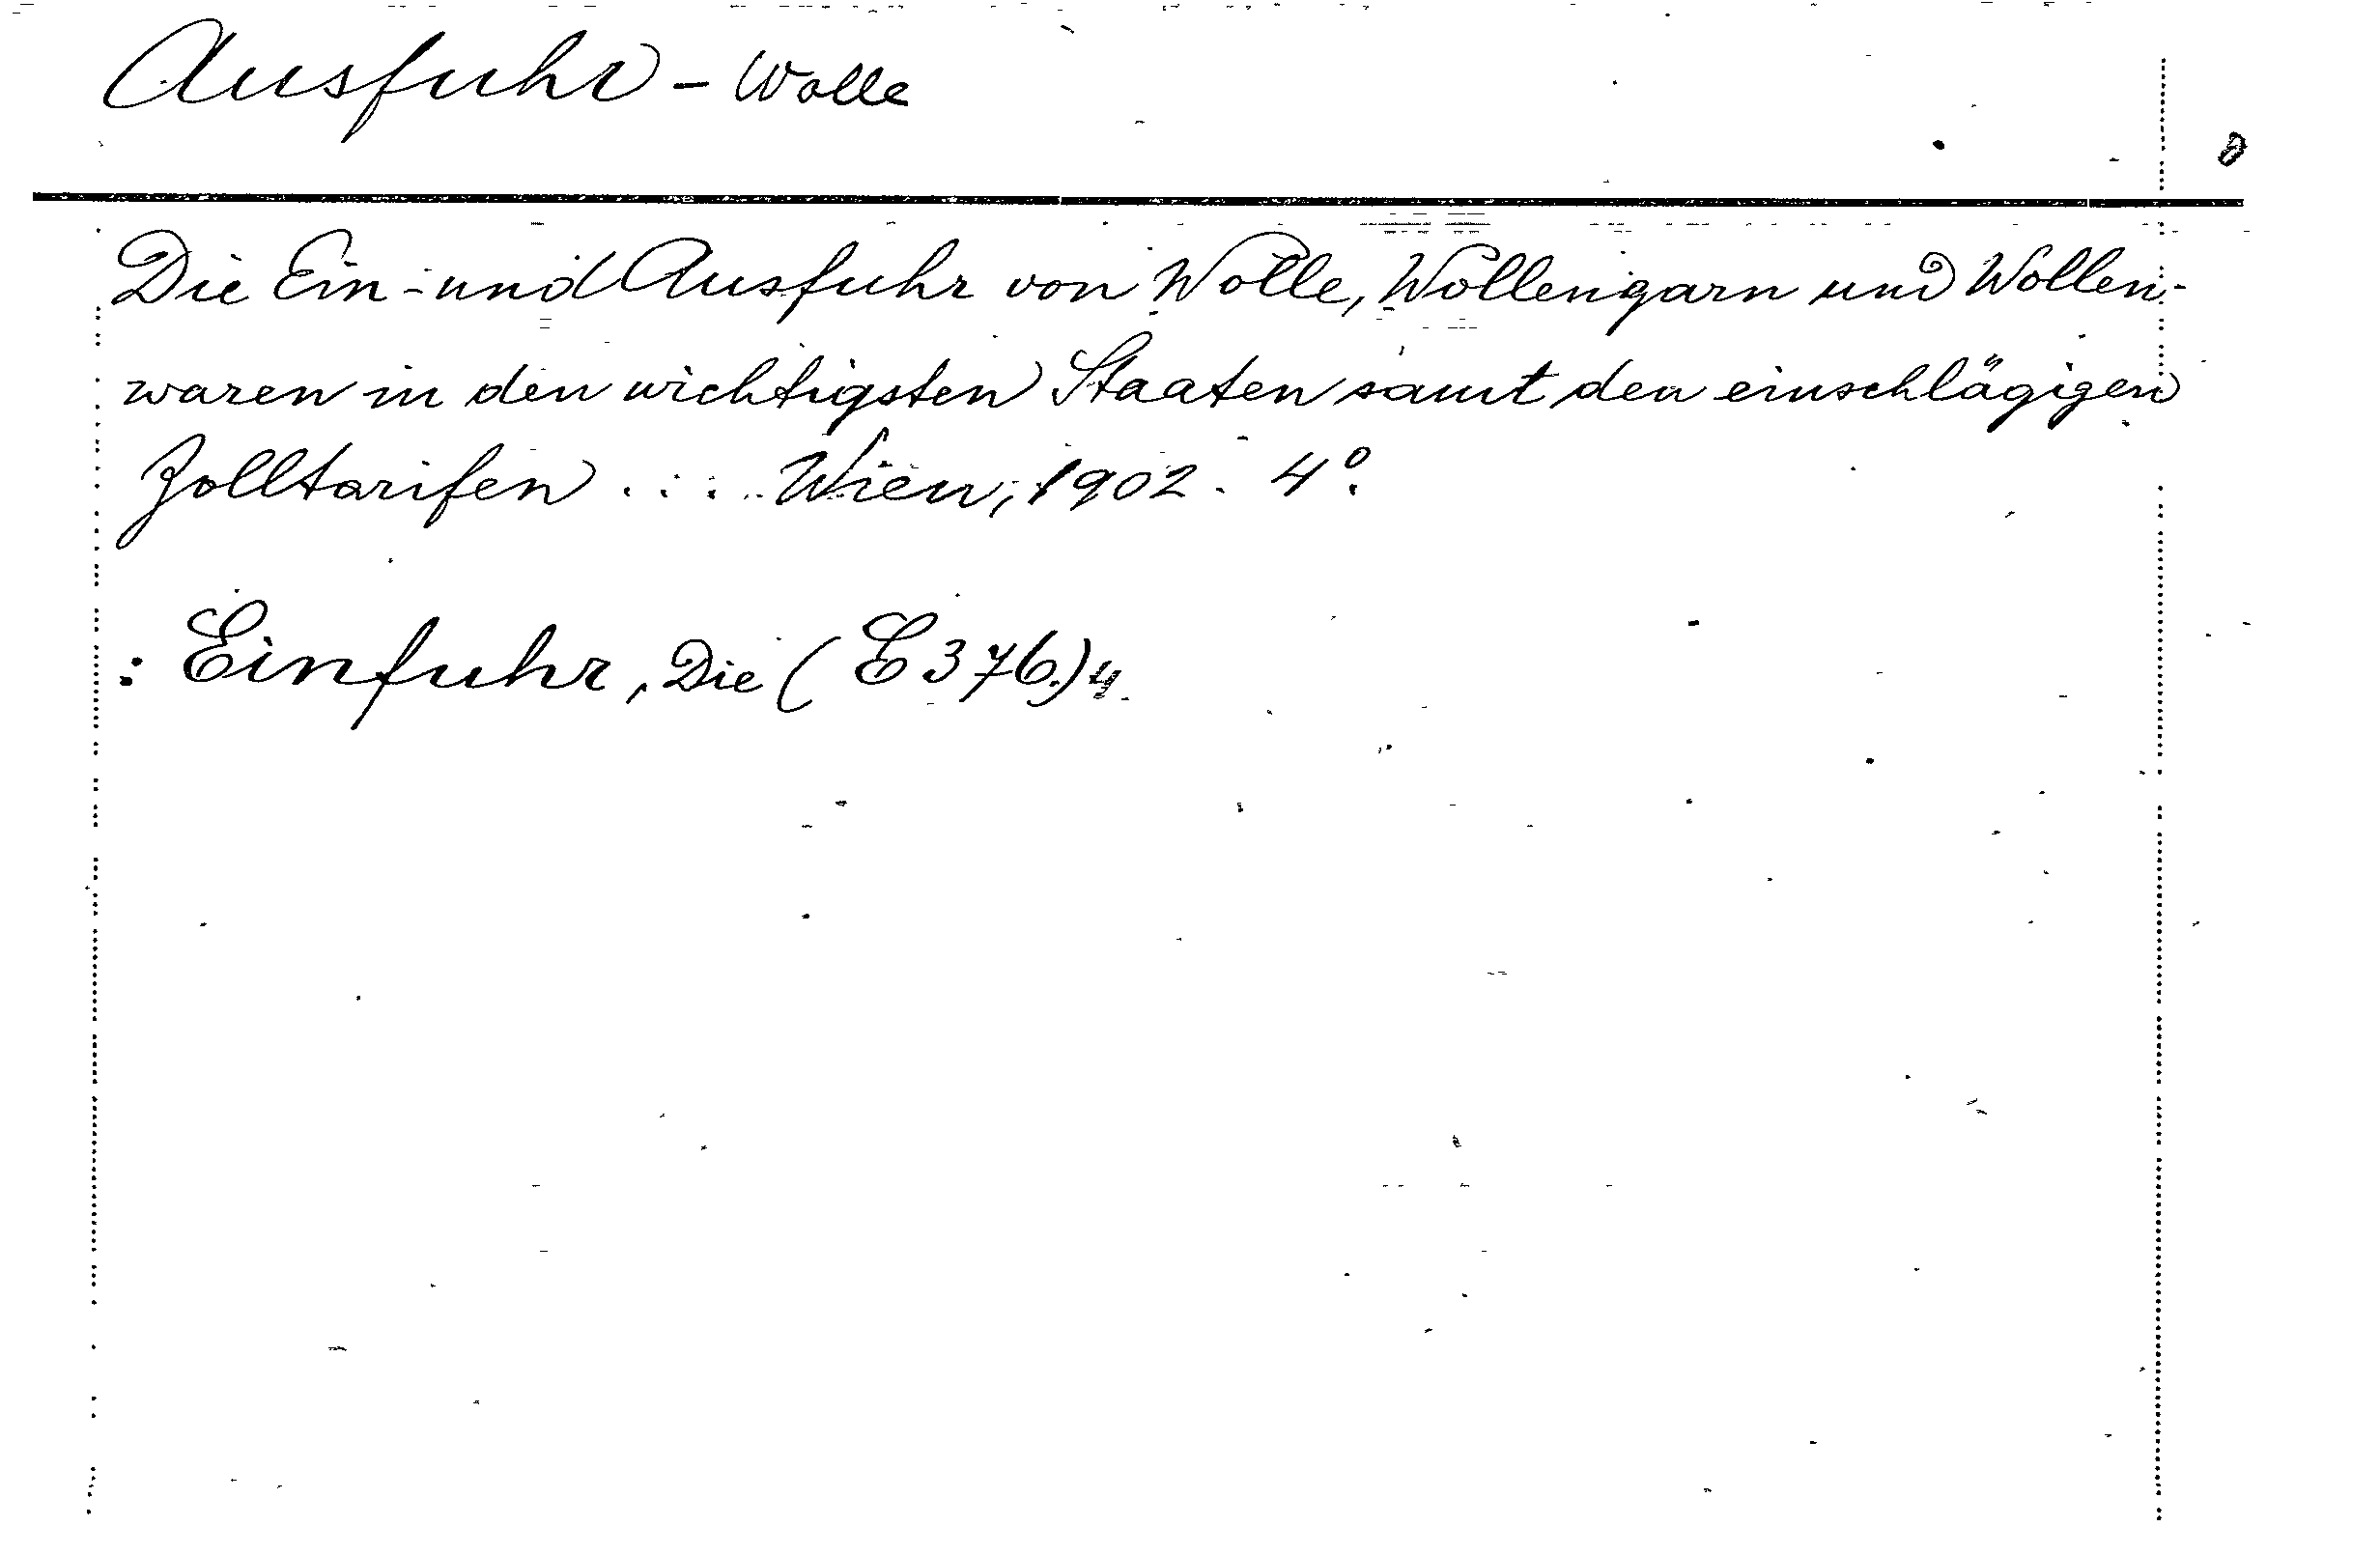 Ausfuhr - Wolle
Die Ein- und Ausfuhr von Wolle, Wollengarn und Wollen-
waren in den wichtigsten Staaten samt den einschlägigen
Zolltarifen .... Wien, 1902. 4°.
: Einfuhr, Die (E 376.) 4